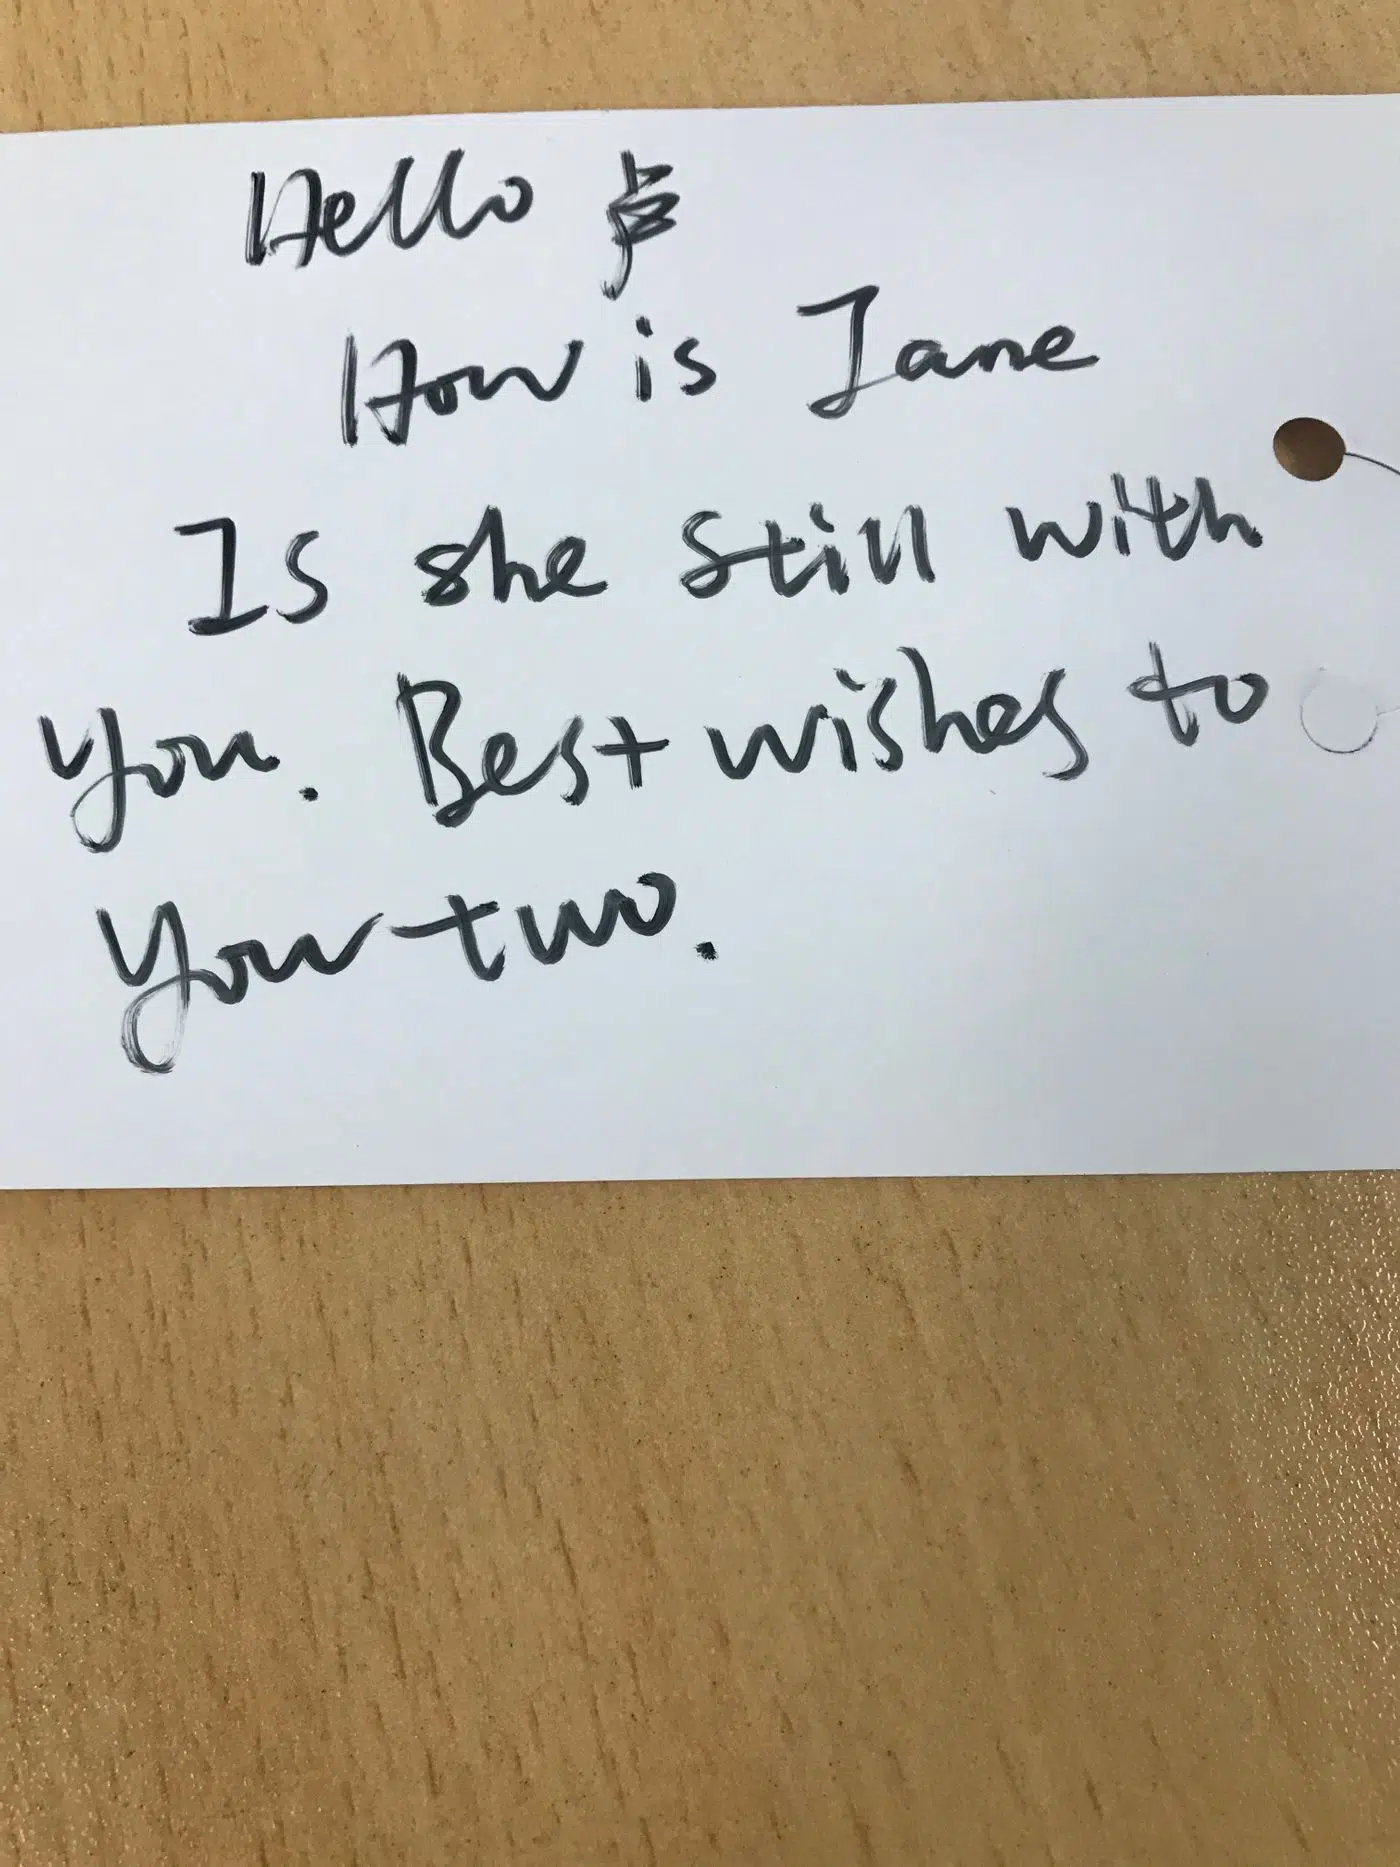 Hello 卢
How is Jane
Is she still with
you. Best wishes to
you two.